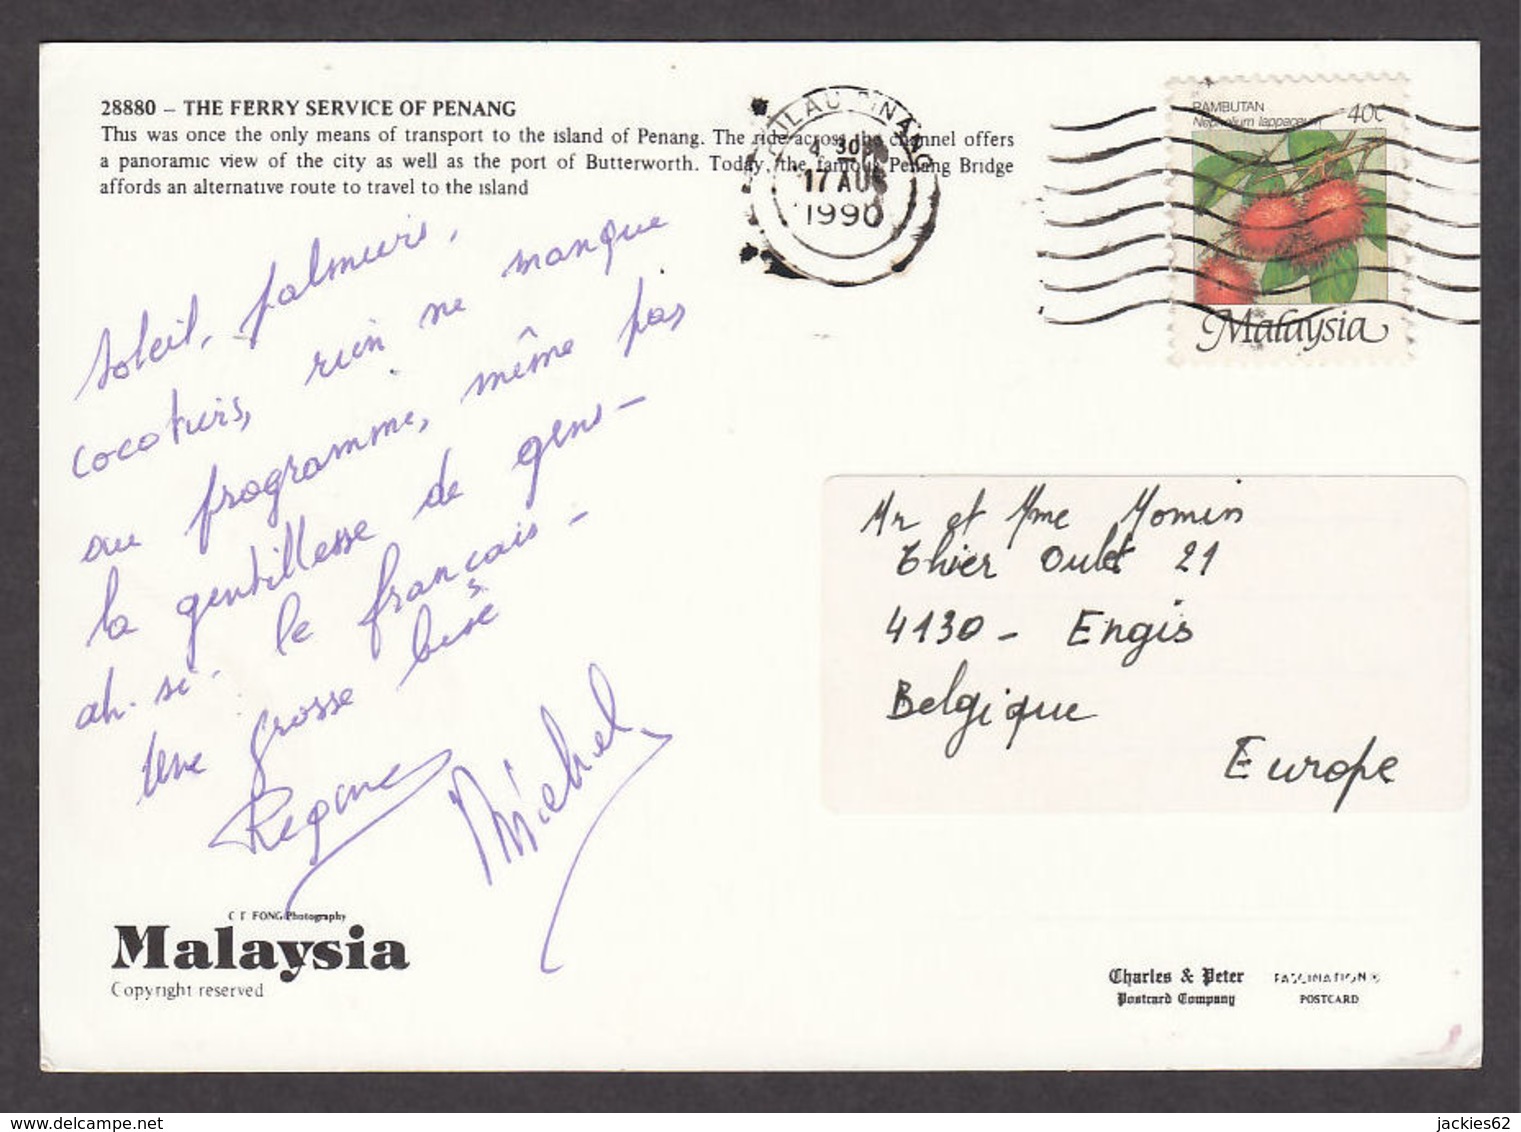 28880 – THE FERRY SERVICE OF PENANG
This was once the only means of transport to the island of Penang. The ride across the channel offers
a panoramic view of the city as well as the port of Butterworth. Today, the famous Penang Bridge
affords an alternative route to travel to the island
PULAU PINANG
4 30
17 AUG
1990
RAMBUTAN
Nephelium lappaceum
40c
Malaysia
Soleil, palmiers,
cocotiers, rien ne manque
au programme, même pas
la gentillesse de gens –
ah. si. le français –
Une grosse bise
Regine
Michel
Mr et Mme Momin
Thier Oulet 21
4130 – Engis
Belgique
Europe
C T FONG Photography
Malaysia
Copyright reserved
Charles & Peter
Postcard Company
FASCINATION®
POSTCARD
jackies62